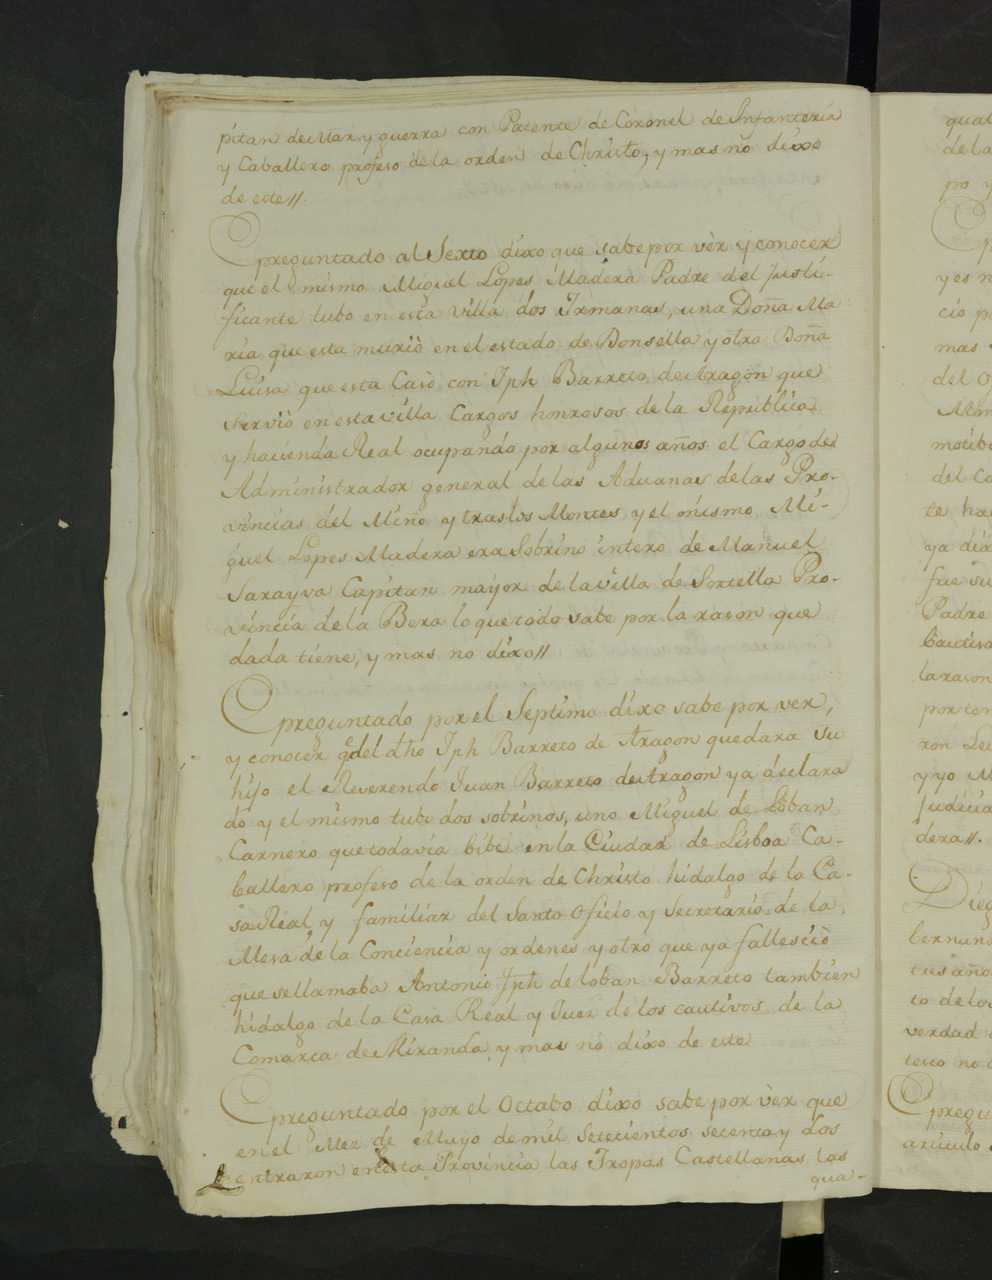 pitan de Mar y guerra con Patente de Coronel de Infanteria
y Caballero profeso de la orden de Christo, y mas nõ dixo
de este//.
Preguntado al Sexto dixo que sabe por vèr y conocer
que el mismo Miguel Lopes Madera Padre del Justi-
ficante tubo en esta Villa dos Irmanas, una Doña Ma
ria que esta muriò en el estado de Donsella y otra Doña
Luisa que esta Casò con Jph Barreto de Aragon que
Serviò en esta villa Cargos honrosos de la Republica
y hacienda Real ocupando por algunos años el Cargo de
Administrador general de las Aduanas de las Pro-
vincias del Miño y traslos Montes, y el mismo Mi-
guel Lopes Madera era Sobrino intero de Manuel
Sarayva Capitan mayor de la Villa de Sortella Pro-
vincia de la Bera lo que todo sabe por la rason que
dada tiene, y mas no dixo//
Preguntado por el Septimo dixo sabe por ver,
y conocer q̃ del dho Jph Barreto de Aragon quedara su
hijo el Reverendo Juan Barreto de Aragon ya declara
do y el mismo tubo dos sobrinos, uno Miguel de Loban
Carnero que todavia bibe en la Ciudad de Lisboa Ca-
ballero profeso de la orden de Christo hidalgo de la Ca-
sa Real y familiar del Santo Oficio y Secretario de la
Mesa de la Conciencia y ordenes y otro que ya falleciò
que se llamaba Antonio Jph de Loban Barreto tambien
hidalgo de la Casa Real y Juez de los cautivos de la
Comarca de Miranda, y mas no dixo de este
Preguntado por el Octabo dixo sabe por vèr que
en el Mez de Mayo de mil Setecientos secenta y dos
entraron en esta Provincia las Tropas Castellanas las
qua-